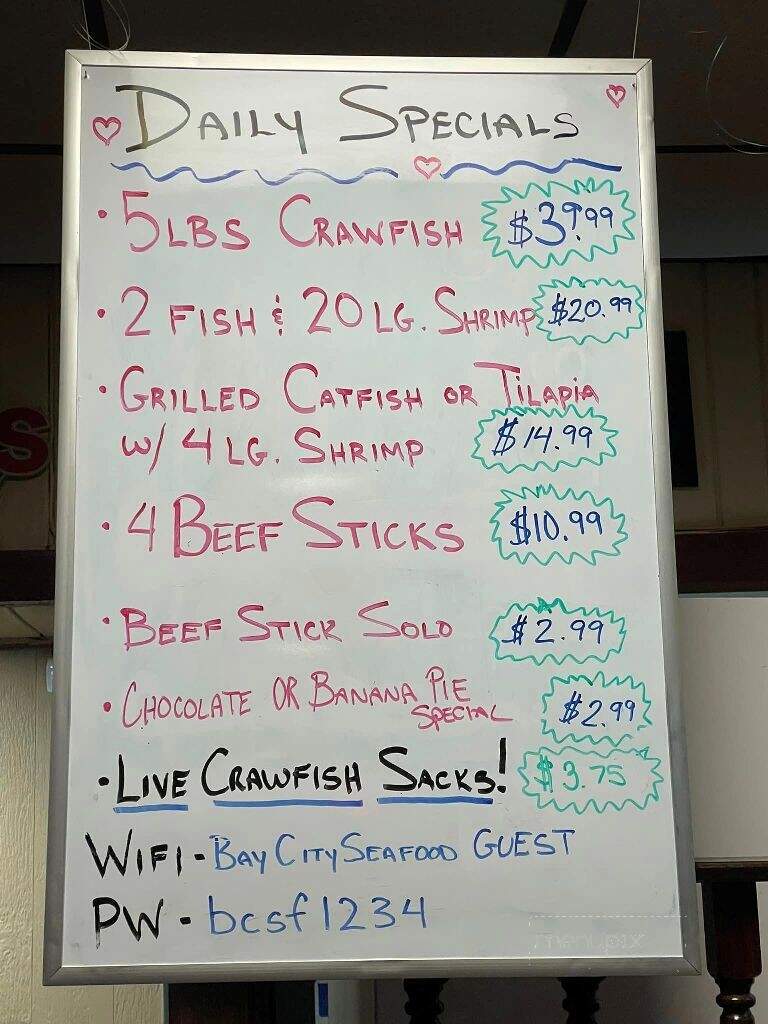 Daily Specials
• 5 lbs Crawfish $39.99
• 2 Fish & 20 Lg. Shrimp $20.99
• Grilled Catfish or Tilapia
w/ 4 Lg. Shrimp $14.99
• 4 Beef Sticks $10.99
• Beef Stick Solo $2.99
• Chocolate or Banana Pie
Special $2.99
• Live Crawfish Sacks! $3.75
WiFi - Bay City Seafood GUEST
PW - bcsf1234
menupix